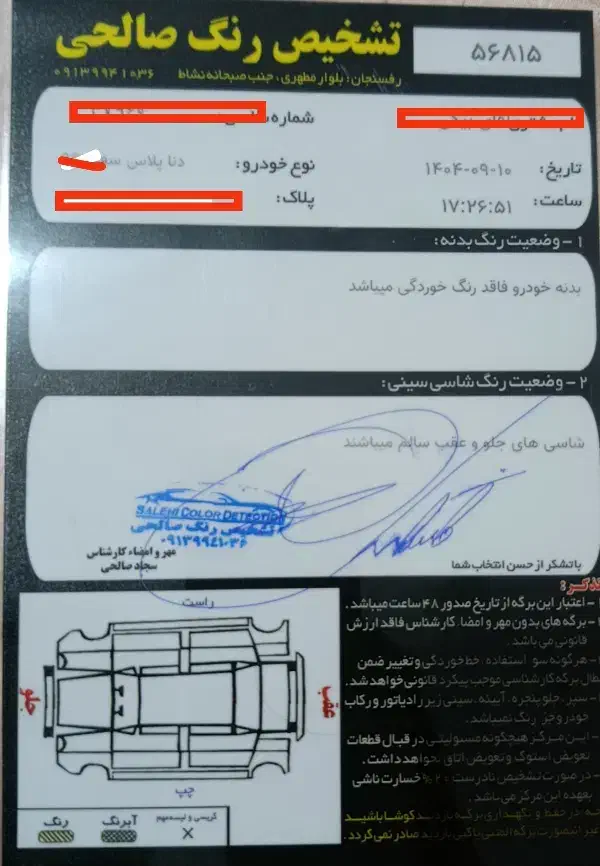 تشخیص رنگ صالحی
۵۶۸۱۵
رفسنجان: بلوار مطهری، جنب صبحانه نشاط
۰۹۱۳۹۹۴۱۰۳۶
شماره
تاریخ: ۱۴۰۴-۰۹-۱۰
نوع خودرو: دنا پلاس
ساعت: ۱۷:۲۶:۵۱
پلاک:
۱ - وضعیت رنگ بدنه:
بدنه خودرو فاقد رنگ خوردگی میباشد
۲ - وضعیت رنگ شاسی سینی:
شاسی های جلو و عقب سالم میباشند
SALEHI COLOR DETECTION
تشخیص رنگ صالحی
۰۹۱۳۹۹۴۱۰۳۶
مهر و امضاء کارشناس
سجاد صالحی
باتشکر از حسن انتخاب شما
تذکر:
۱- اعتبار این برگه از تاریخ صدور ۴۸ ساعت میباشد.
برگه های بدون مهر و امضاء کارشناس فاقد ارزش
قانونی می باشد.
هرگونه سوء استفاده، خط خوردگی و تغییر ضمن
ابطال برگه کارشناسی موجب پیگرد قانونی خواهد شد.
سپر، جلو پنجره، آیینه، سینی زیر رادیاتور و رکاب
خودرو جزء رنگ نمیباشد.
این مرکز هیچگونه مسئولیتی در قبال قطعات
تعویض استوک و تعویض اتاق نخواهد داشت.
در صورت تشخیص نادرست ۲۰% خسارت ناشی
بعهده این مرکز می باشد.
در حفظ و نگهداری برگه بازدید کوشا باشید
غیر اینصورت برگه المثنی بازدید صادر نمی گردد.
راست
جلو
عقب
چپ
رنگ
آبرنگ
گریسی و لیسه مهم
X